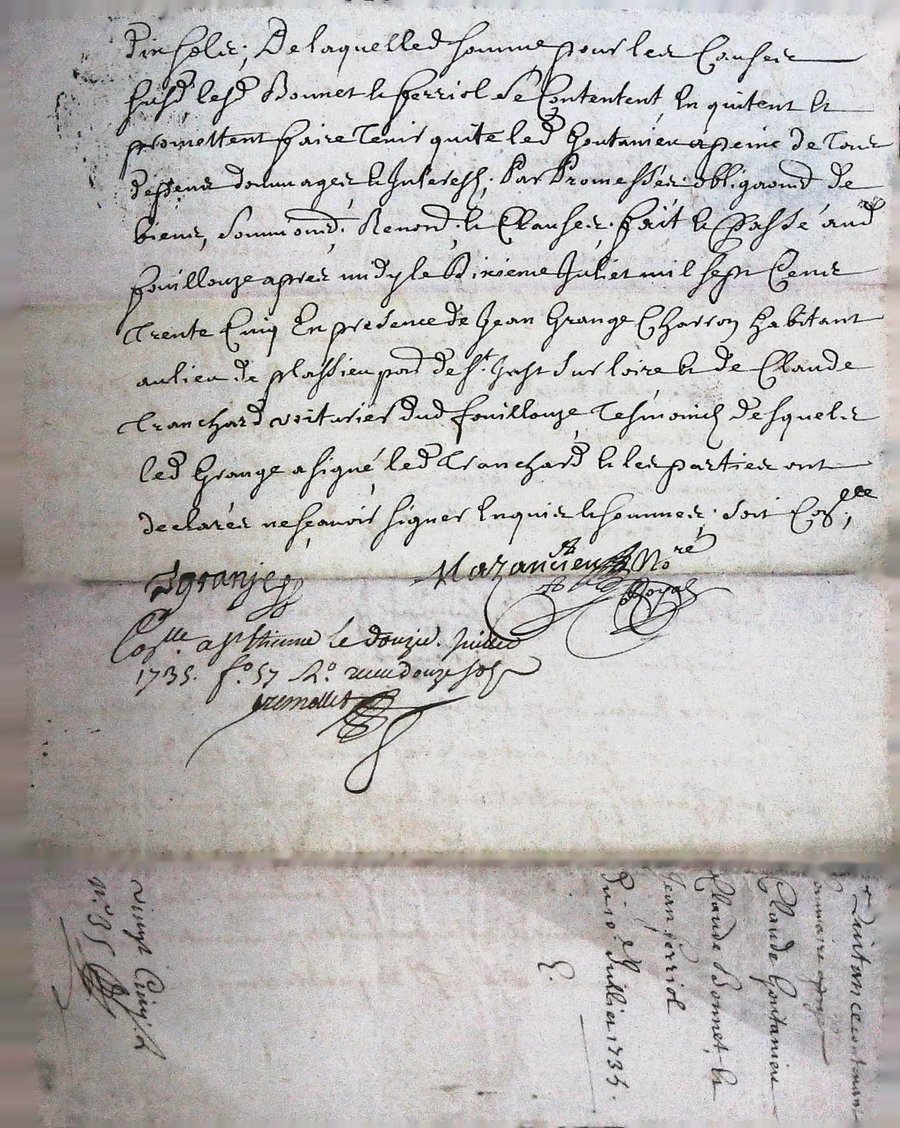 Dix sols, De laquelle d somme pour les Causes
susd les d Bonnet & ferriol Se Contentent En quitent &
promettent faire Tenir quite led Goutanieu a peine de Tous
despens dommages & Interests, Par Promesses obligaons de
biens, Soumions, Renons, & Clauses. fait & Passé aud
fouillouze apres midy le Dixieme Juliet mil sept Cens
Trente Cinq En presence de Jean Grange Charron habitant
au lieu de plassieu parr de St. Just Sur loire & de Claude
Tranchard voiturier dud fouillouze Tesmoins desquels
led Grange a signé led Tranchard & les parties ont
declarés ne scavoir signer Enquis & sommes. Soit Coñ lle
Jgranje
No re
Royal
Coñ lle. a St Etienne le douze. Juillet
1735. fo. 57 Ro. recu douze sols
Quittance contenant
Claude Goutanieu
Claude Bonnet &
Jean ferriol
Du 10 Juillier 1735.
vingt Cinq s
no. 35